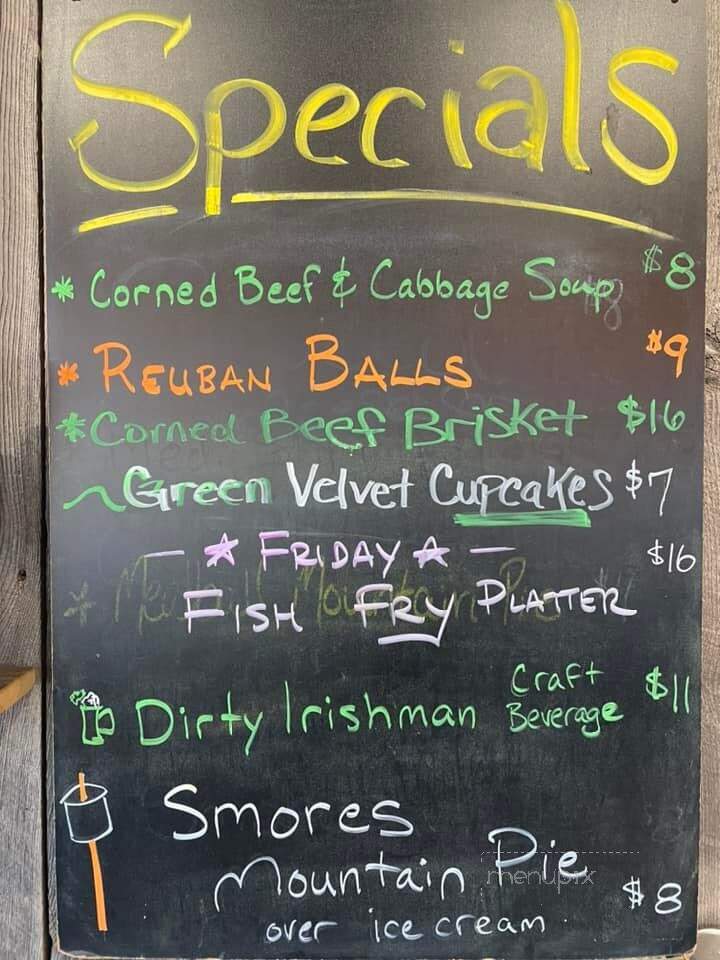 Specials
* Corned Beef & Cabbage Soup $8
* REUBAN BALLS $9
* Corned Beef Brisket $16
~ Green Velvet Cupcakes $7
- ☆ FRIDAY ☆ - $16
FISH FRY PLATTER
Dirty Irishman Craft Beverage $11
Smores
Mountain Pie $8
over ice cream
menupix